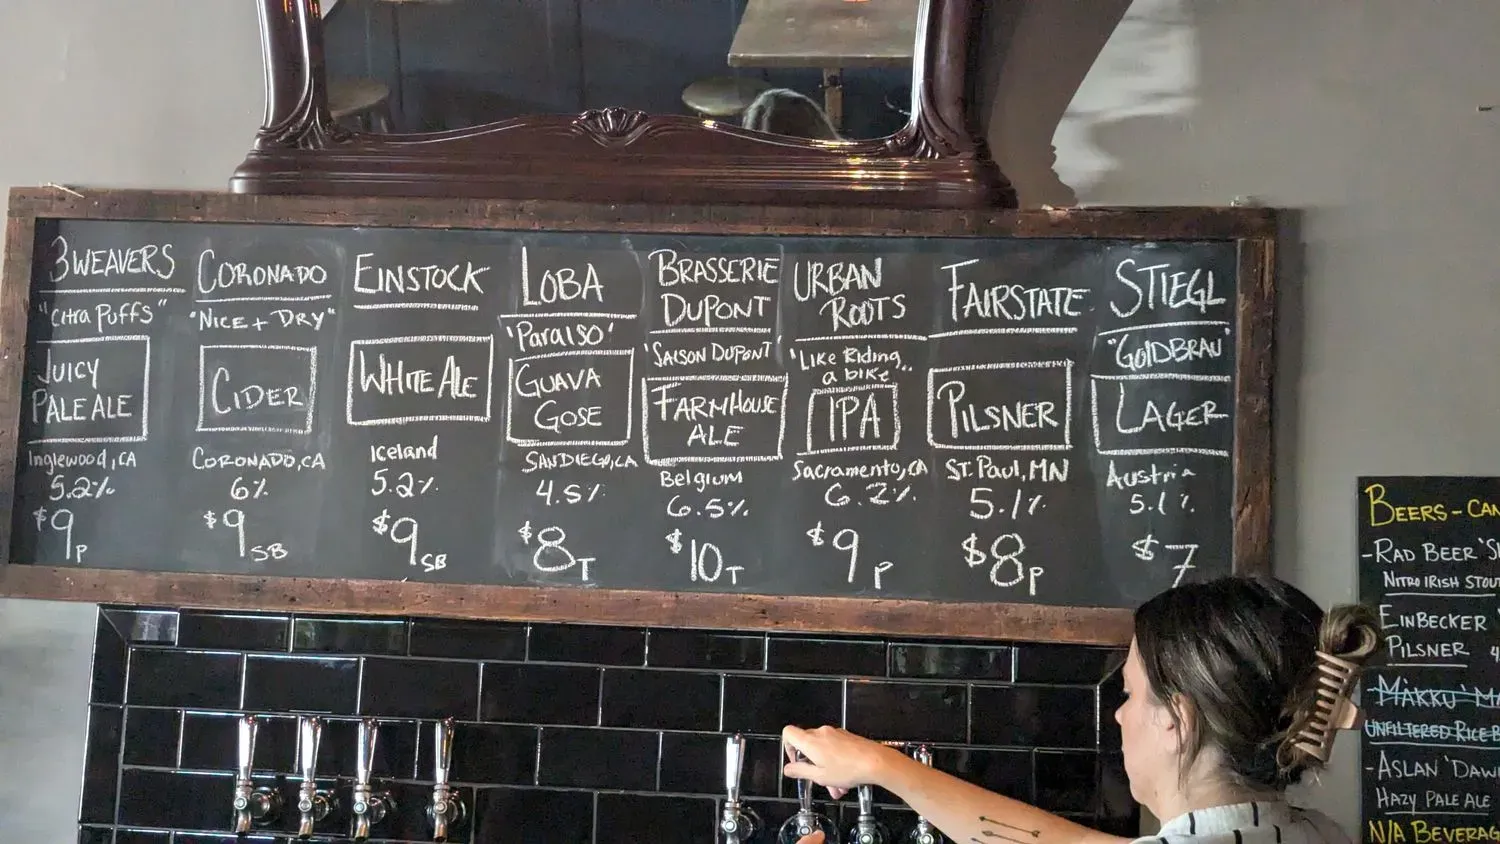 3 WEAVERS
"Citra Puffs"
JUICY
PALE ALE
Inglewood, CA
5.2%
$9P
CORONADO
"NICE + DRY"
CIDER
CORONADO, CA
6%
$9SB
EINSTOCK
WHITE ALE
Iceland
5.2%
$9SB
LOBA
'Paraiso'
GUAVA
GOSE
SAN DIEGO, CA
4.5%
$8T
BRASSERIE
DUPONT
'SAISON DUPONT'
FARMHOUSE
ALE
Belgium
6.5%
$10T
URBAN
ROOTS
'Like Riding
a bike'
IPA
Sacramento, CA
6.2%
$9P
FAIRSTATE
PILSNER
ST. Paul, MN
5.1%
$8P
STIEGL
"GOLDBRAU"
LAGER
Austria
5.1%
$7
BEERS - CAN
- RAD BEER
NITRO IRISH STOUT
EINBECKER
PILSNER 4
MAKKU
UNFILTERED RICE
- ASLAN 'DAW
HAZY PALE ALE
N/A BEVERAG